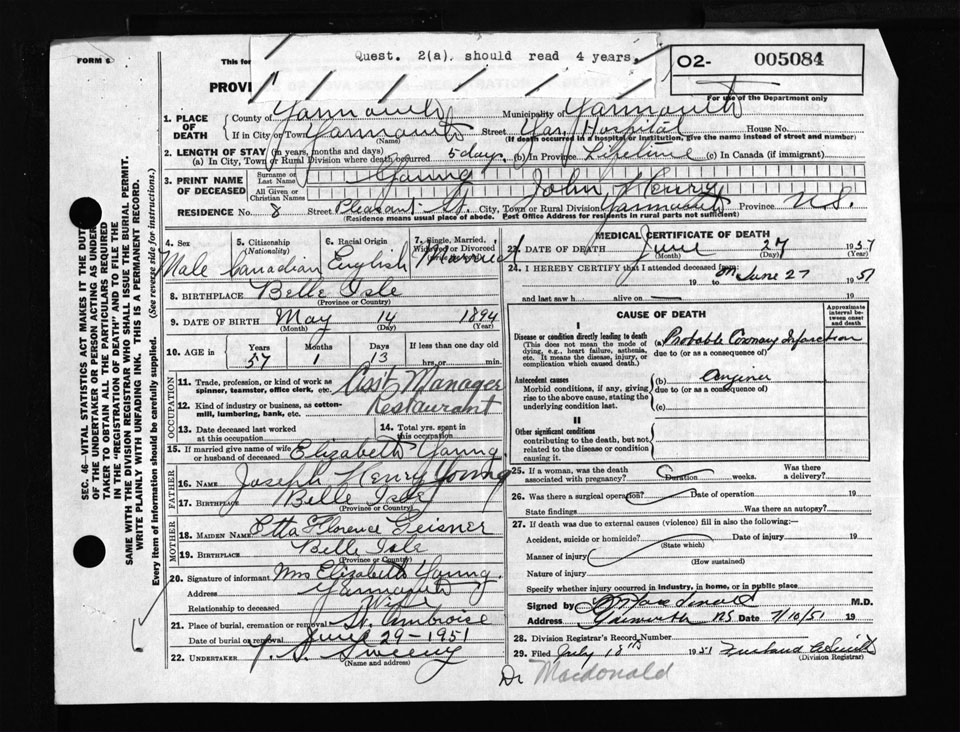 FORM 6
This for
Quest. 2(a). should read 4 years.
O2- 005084
PROVI
For use of the Department only
1. PLACE OF DEATH
County of Yarmouth Municipality of Yarmouth
If in City or Town Yarmouth Street Yar. Hospital House No.
(Name) (If death occurred in a hospital or institution, give the name instead of street and number)
2. LENGTH OF STAY (in years, months and days)
(a) In City, Town or Rural Division where death occurred 5 days (b) in Province Lifetime (c) In Canada (if immigrant)
3. PRINT NAME OF DECEASED
Surname or Last Name Young
All Given or Christian Names John Henry
RESIDENCE No. 8 Street Pleasant St. City, Town or Rural Division Yarmouth Province N.S.
(Residence means usual place of abode. Post Office Address for residents in rural parts not sufficient)
4. Sex Male
5. Citizenship (Nationality) Canadian
6. Racial Origin English
7. Single, Married, Widowed or Divorced Married
8. BIRTHPLACE Belle Isle
(Province or Country)
9. DATE OF BIRTH May 14 1894
(Month) (Day) (Year)
10. AGE in Years Months Days If less than one day
57 1 13 hrs. or min.
OCCUPATION
11. Trade, profession, or kind of work as spinner, teamster, office clerk, etc. Ass't Manager
12. Kind of industry or business, as cotton-mill, lumbering, bank, etc. Restaurant
13. Date deceased last worked at this occupation
14. Total yrs. spent in this occupation
15. If married give name of wife or husband of deceased Elizabeth Young
FATHER
16. NAME Joseph Henry Young
17. BIRTHPLACE Belle Isle
(Province or Country)
MOTHER
18. MAIDEN NAME Etta Florence Geisner
19. BIRTHPLACE Belle Isle
(Province or Country)
20. Signature of informant Mrs Elizabeth Young
Address Yarmouth
Relationship to deceased Wife
21. Place of burial, cremation or removal St. Ambroise
Date of burial or removal June 29-1951
22. UNDERTAKER Sweeny
(Name and address)
MEDICAL CERTIFICATE OF DEATH
23. DATE OF DEATH June 27 1951
(Month) (Day) (Year)
24. I HEREBY CERTIFY that I attended deceased from: on June 27
19 to 1951
and last saw h alive on 19
CAUSE OF DEATH
Approximate interval between onset and death
I
Disease or condition directly leading to death
(This does not mean the mode of dying, e.g., heart failure, asthenia, etc. It means the disease, injury, or complication which caused death.)
(a) Probable Coronary Infarction
due to (or as consequence of)
Antecedent causes
Morbid conditions, if any, giving rise to the above cause, stating the underlying condition last.
(b) Angina
due to (or as a consequence of)
(c)
II
Other significant conditions
contributing to the death, but not related to the disease or condition causing it.
25. If a woman, was the death associated with pregnancy? Duration weeks. Was there a delivery?
26. Was there a surgical operation? Date of operation 19
State findings Was there an autopsy?
27. If death was due to external causes (violence) fill in also the following:
Accident, suicide or homicide? Date of injury 19
(State which)
Manner of injury
(How sustained)
Nature of injury
Specify whether injury occurred in industry, in home, or in public place
Signed by Macdonald M.D.
Address Yarmouth NS Date 7/10/51 19
28. Division Registrar's Record Number
29. Filed July 18th 1951
(Division Registrar)
Dr Macdonald
SEC. 46-VITAL STATISTICS ACT MAKES IT THE DUTY
OF THE UNDERTAKER OR PERSON ACTING AS UNDER-
TAKER TO OBTAIN ALL THE PARTICULARS REQUIRED
IN THE "REGISTRATION OF DEATH" AND TO FILE THE
SAME WITH THE DIVISION REGISTRAR WHO SHALL ISSUE THE BURIAL PERMIT.
WRITE PLAINLY WITH UNFADING INK. THIS IS A PERMANENT RECORD.
Every item of information should be carefully supplied. (See reverse side for instructions.)